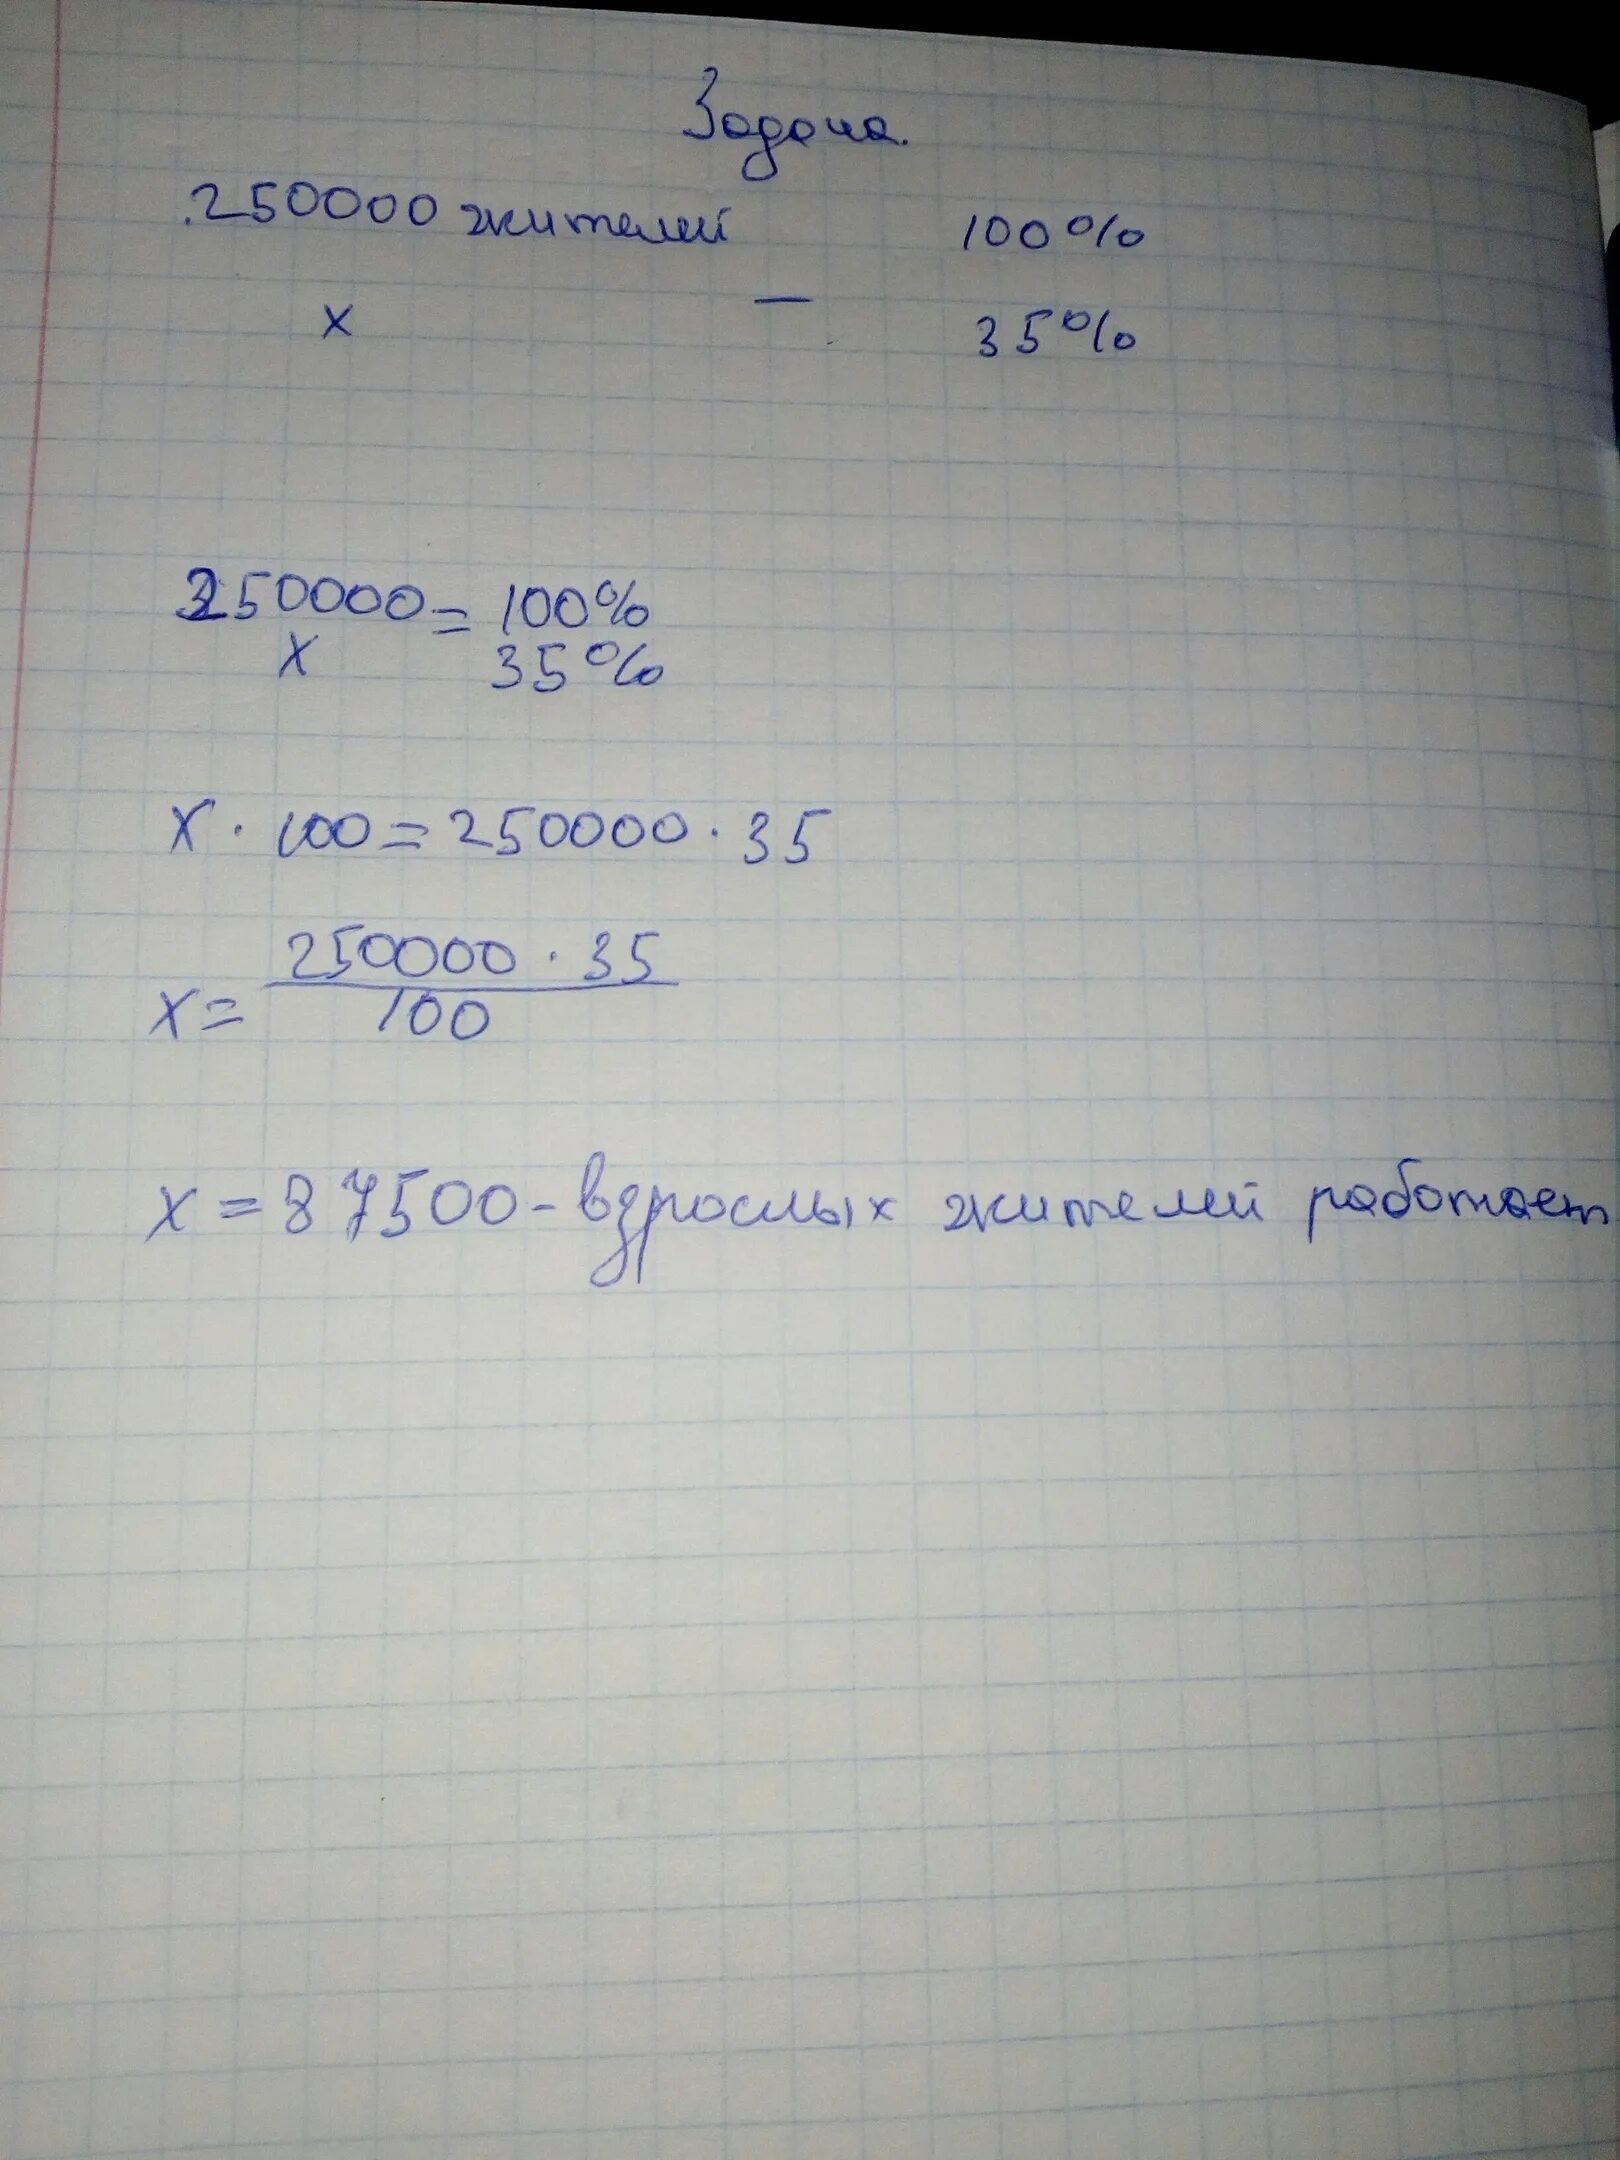 Задача.
250000 жителей 100%
х — 35%
250000 = 100%
х 35%
х · 100 = 250000 · 35
250000 · 35
х = 100
х = 87500 - взрослых жителей работает